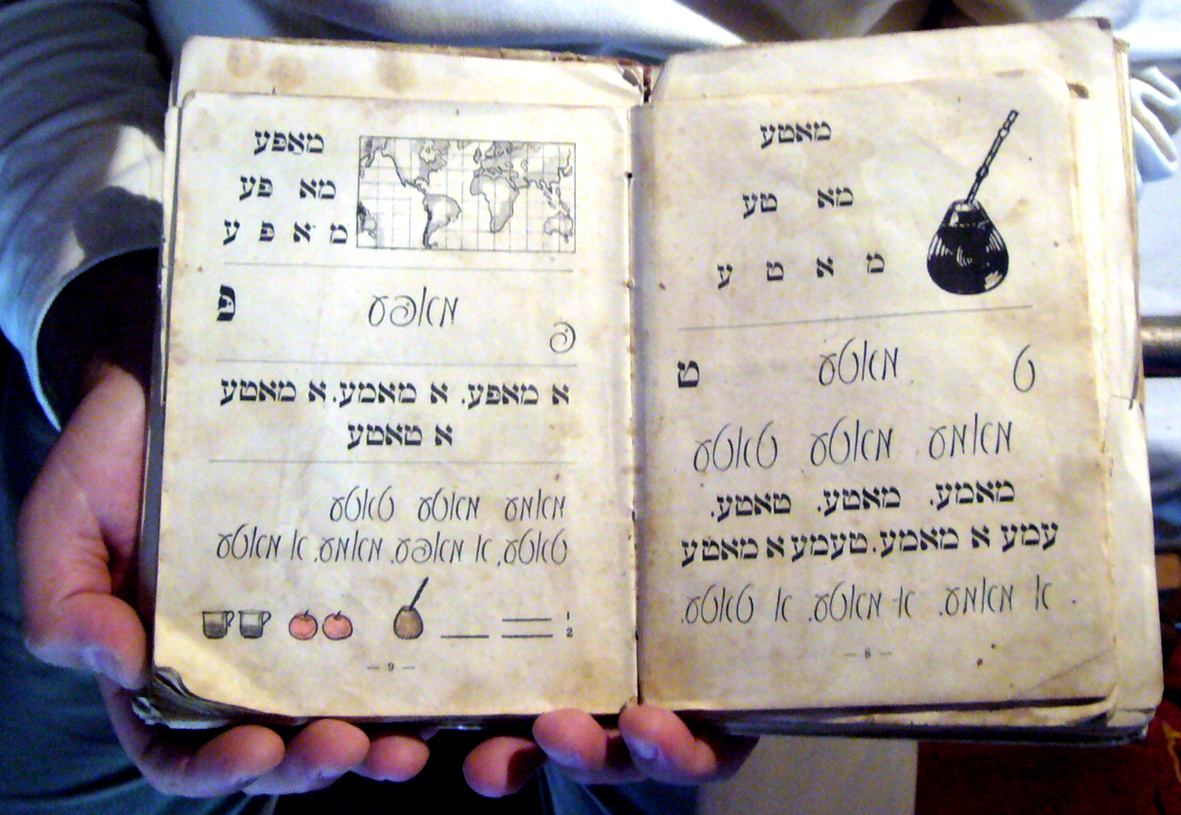 מאטע
מא טע
מ א ט ע
ט מאטע ט
מאמע מאטע טאטע
מאמע. מאטע. טאטע.
עמע א מאמע. טעמע א מאטע
א מאמע. א מאטע. א טאטע.
— 8 —
מאַפע
מא פע
מ א פ ע
פּ מאפּע פּ
א מאפע. א מאמע. א מאטע
א טאטע
מאמע מאטע טאטע
טאטע, א מאפּע. מאמע. א מאטע
1
2
— 9 —